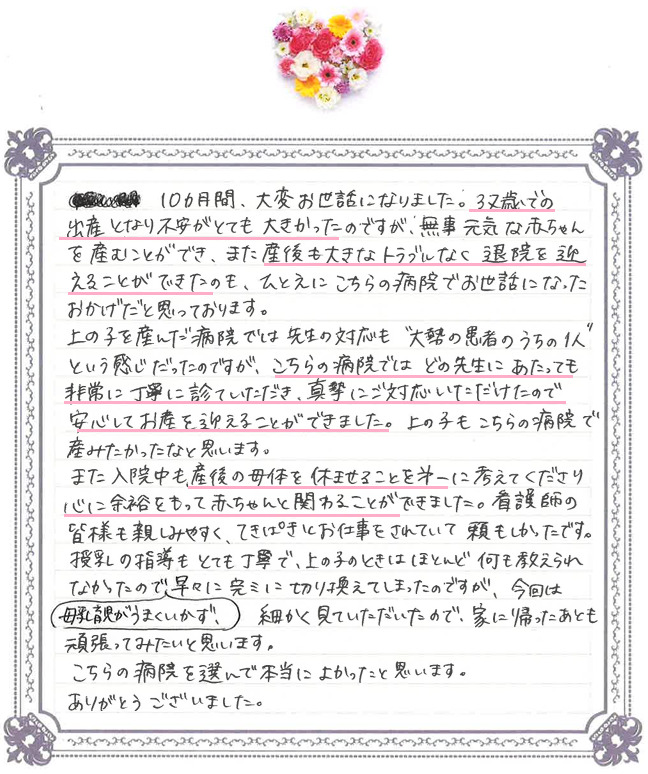 10カ月間、大変お世話になりました。37歳での
出産となり不安がとても大きかったのですが、無事元気な赤ちゃん
を産むことができ、また産後も大きなトラブルなく退院を迎
えることができたのも、ひとえにこちらの病院でお世話になった
おかげだと思っております。
上の子を産んだ病院では先生の対応も“大勢の患者のうちの1人”
という感じだったのですが、こちらの病院ではどの先生にあたっても
非常に丁寧に診ていただき、真摯にご対応いただけたので
安心してお産を迎えることができました。上の子もこちらの病院で
産みたかったなと思います。
また入院中も、産後の母体を休ませることを第一に考えてくださり
心に余裕をもって赤ちゃんと関わることができました。看護師の
皆様も親しみやすく、てきぱきとお仕事をされていて頼もしかったです。
授乳の指導もとても丁寧で、上の子のときはほとんど何も教えられ
なかったので早々に完ミに切り換えてしまったのですが、今回は
母乳育児がうまくいかず、細かく見ていただいたので、家に帰ったあとも
頑張ってみたいと思います。
こちらの病院を選んで本当によかったと思います。
ありがとうございました。